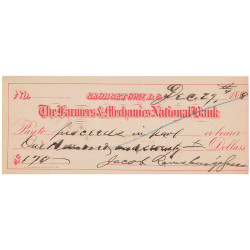 No.
GEORGETOWN, D.C. Dec. 27th 188
The Farmers & Mechanics National Bank
Pay to proceeds in part or bearer
One Hundred and seventy Dollars
$170 Jacob